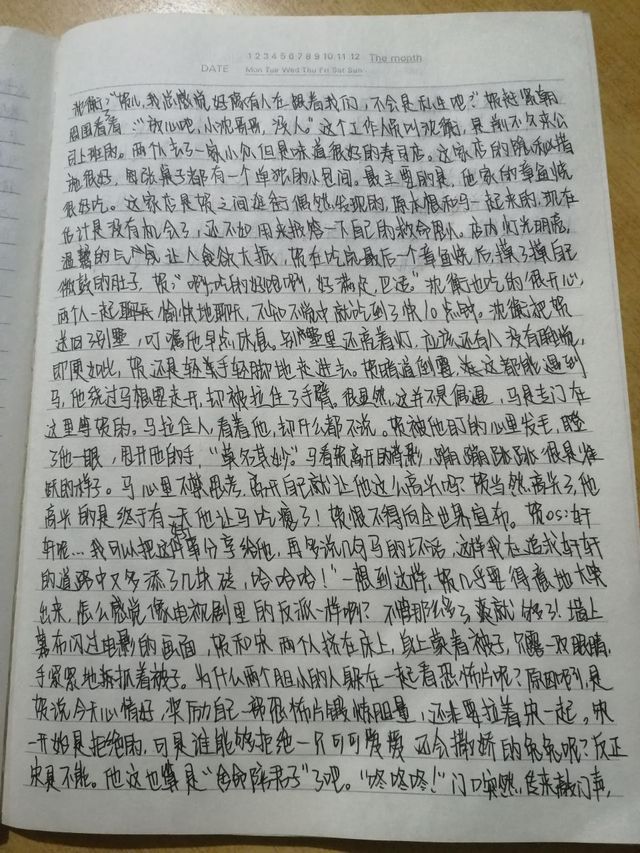 1 2 3 4 5 6 7 8 9 10 11 12 The month
DATE Mon Tue Wed Thu Fri Sat Sun
沈衡:"顿儿,我总感觉好像有人在跟着我们,不会是私生吧?"顿赶紧朝
周围看看:"放心吧,小沈哥哥,没人。"这个工作人员叫沈衡,是前不久来公
司上班的。两个人去了一家小众但是味道很好的寿司店。这家店的隐私措
施很好,每张桌子都有一个单独的小包间。最主要的是,他家的章鱼烧
很好吃。这家店是顿之前在偶然发现的,原本想和马一起来的,现在
估计是没有机会了,还不如用来抚慰一下自己的。店内灯光明亮,
温馨的气氛让人食欲大振,顿在吃完最后一个章鱼烧后,摸了摸自己
微鼓的肚子,顿:"啊~吃的好饱啊,好满足,巴适。"沈衡也吃的很开心,
两个人一起愉快地聊天,不知不觉中就吃到了快10点钟。沈衡把顿
送回了别墅,叮嘱他早点休息。别墅里还亮着灯,应该还有人没有睡觉,
即便如此,顿还是轻手轻脚地走进去。顿暗道倒霉,怎么这都能遇到
马,他绕过马想要走开,却被拉住了手臂。很显然,这并不是偶遇,马是专门在
这里等顿的。马拉住人,看着他,却什么都不说。顿被他盯的心里发毛,瞪
了他一眼,甩开他的手,"莫名其妙。"马看顿离开的背影,蹦蹦跳跳,很是雀
跃的样子。马心里不禁思考,离开自己就让他这么高兴吗?顿当然高兴了,他
高兴的是终于有一天他让马吃瘪了!顿恨不得向全世界宣布。顿OS:轩
轩呢…我可以把这件好事分享给他,再多说几句马的坏话,这样我在追求轩轩
的道路中又多添了几块砖,哈哈哈!"一想到这样,顿几乎要得意地大笑
出来,怎么感觉像电视剧里的反派一样啊?不管那么多了,爽就够了!墙上
幕布闪过电影的画面,顿和宋两个人挤在床上,身上蒙着被子,只露一双眼睛,
手紧紧地抓着被子。为什么两个胆小的人躲在一起看恐怖片呢?原因啊,是
顿说今天心情好,奖励自己一部恐怖片锻炼胆量,还非要拉着宋一起。宋
一开始是拒绝的,可是谁能够拒绝一只可可爱爱还会撒娇的兔兔呢?反正
宋是不能。他这也算是"舍命陪君子"了吧。"咚咚咚!"门口突然传来敲门声,